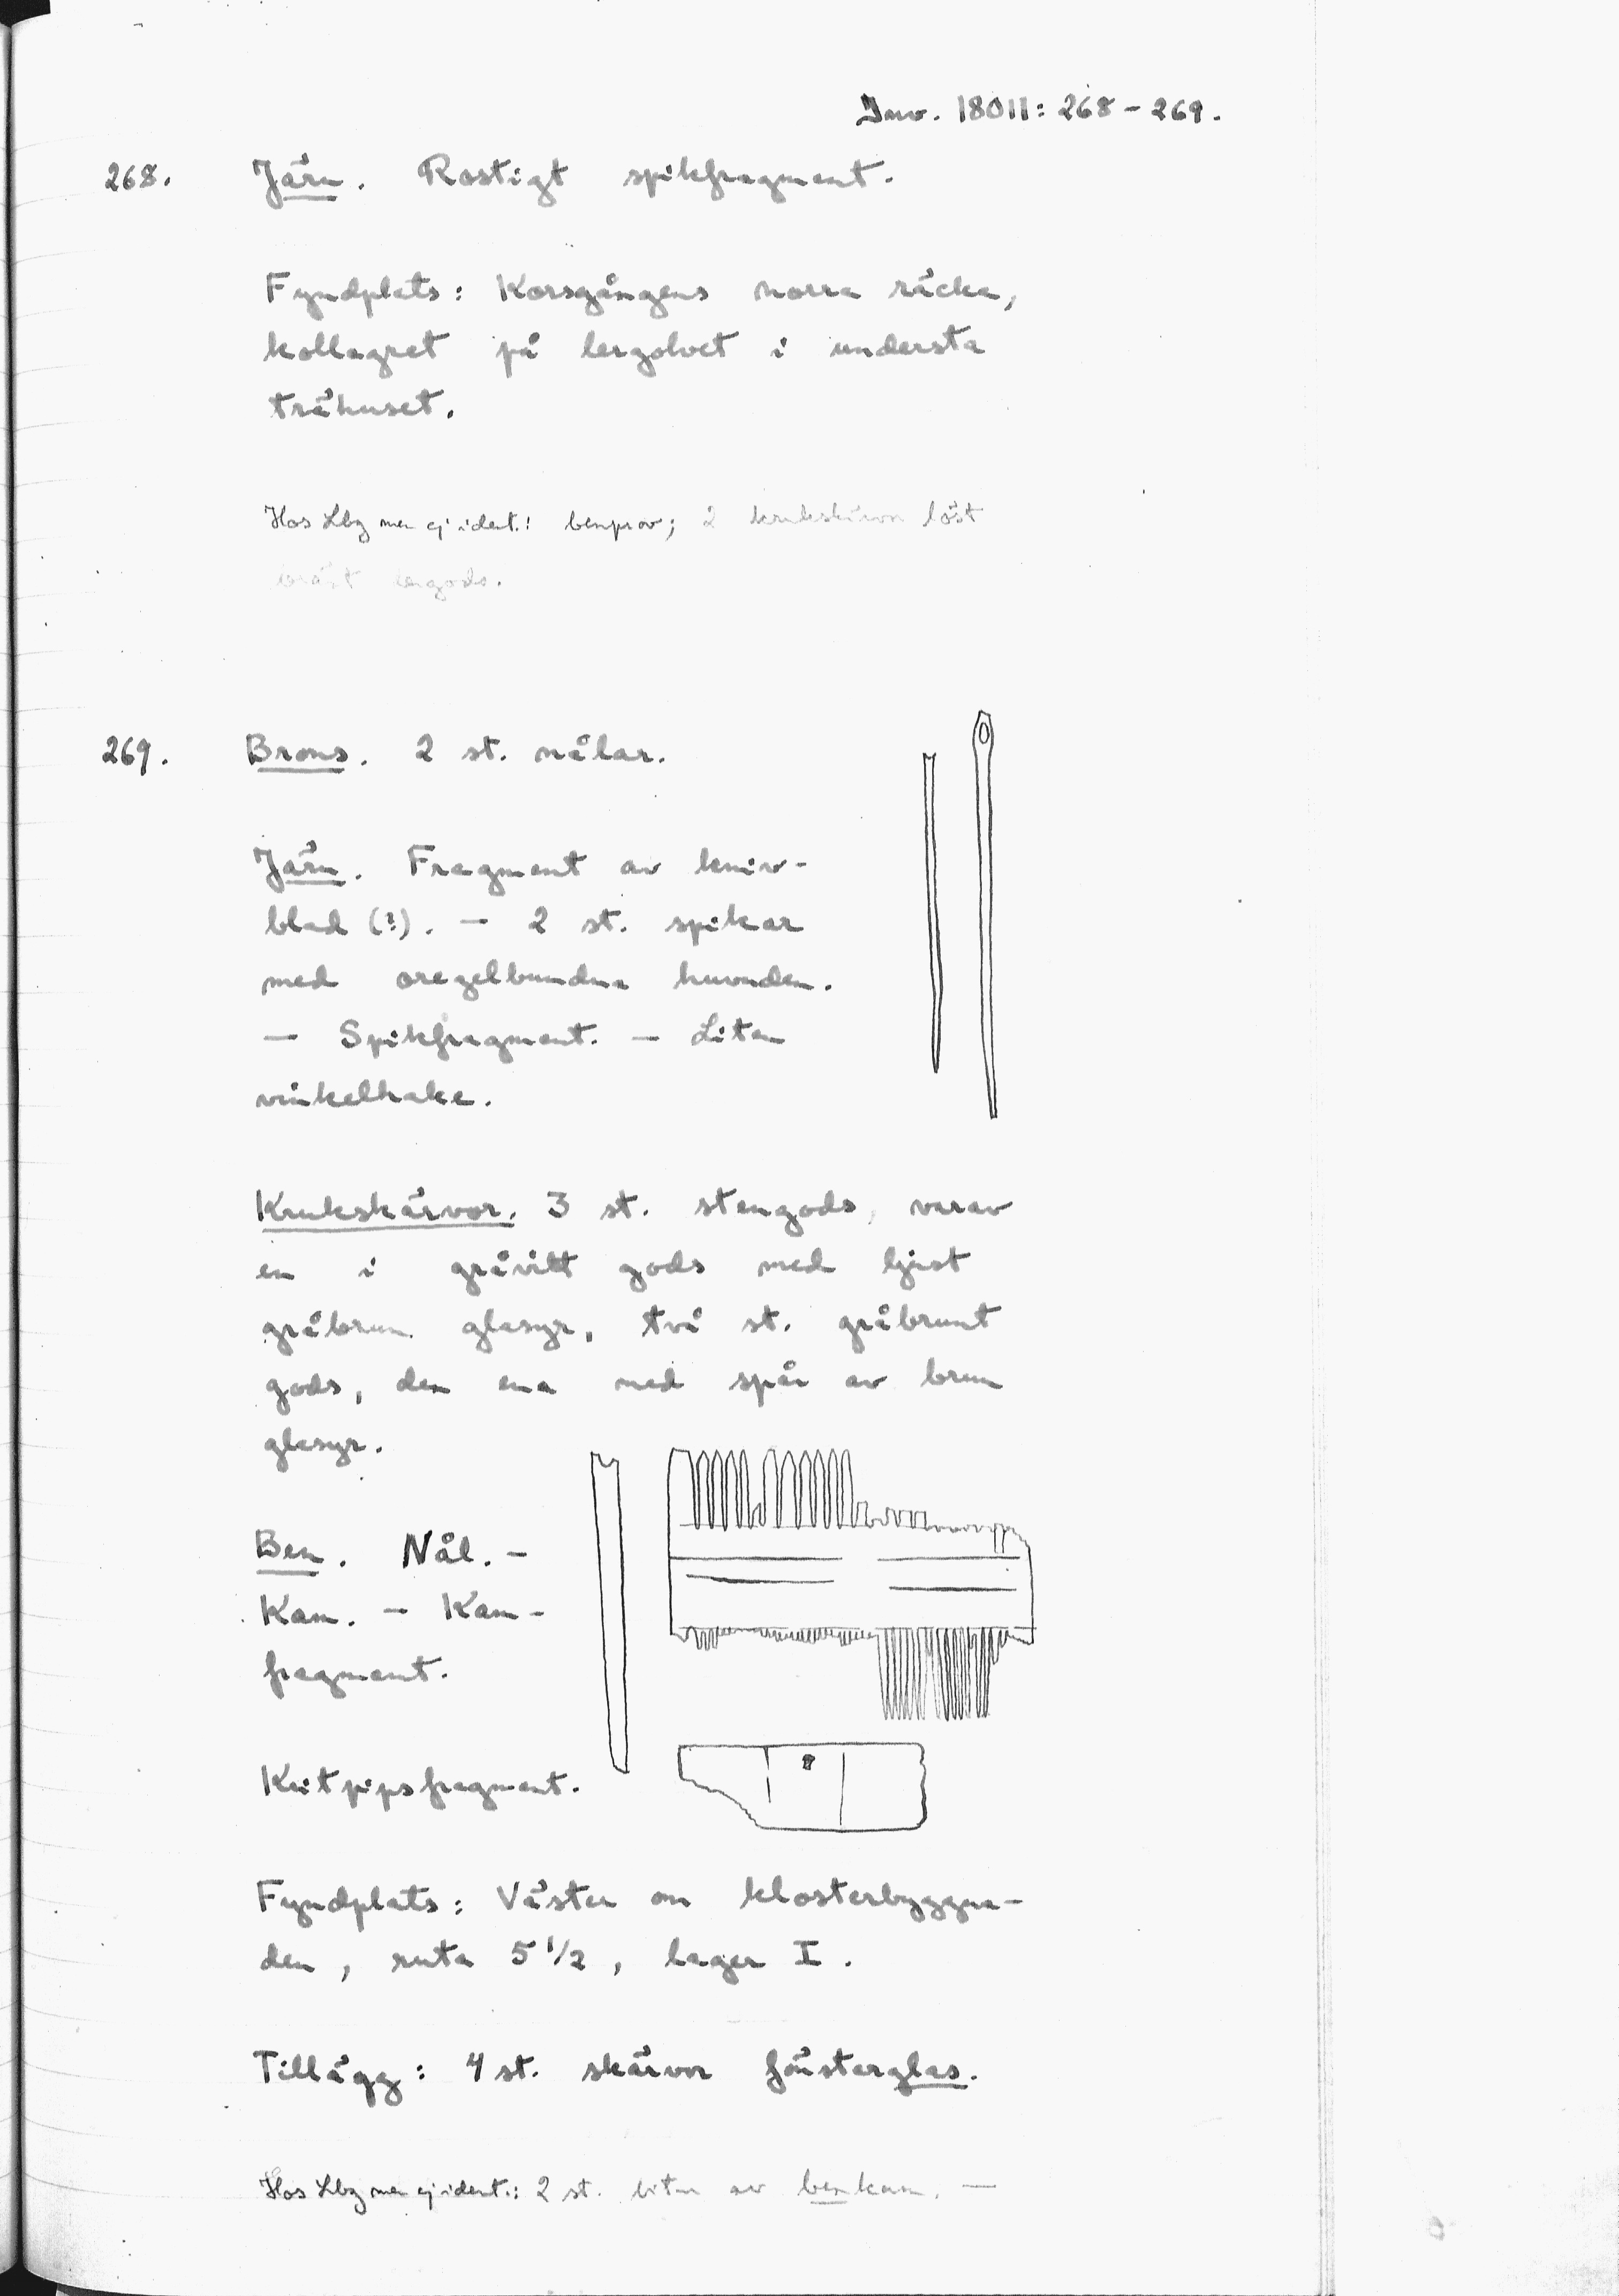 Inv. 18011: 268 - 269.
268. Järn. Rostigt spikfragment.
Fyndplats: Korsgångens norra räcka,
kollagret på lergolvet i understa
trähuset.
Hos Lbg men ej ident.: benprov; 2 krukskärvor löst
bränt lergods.
269. Brons. 2 st. nålar.
Järn. Fragment av kniv-
blad (?). — 2 st. spikar
med oregelbundna huvuden.
— Spikfragment. — Liten
vinkelhake.
Krukskärvor. 3 st. stengods, varav
en i gråvitt gods med ljust
gråbrun glasyr, två st. gråbrunt
gods, den ena med spår av brun
glasyr.
Ben. Nål. —
Kam. — Kam-
fragment.
Kritpipsfragment.
Fyndplats: Väster om klosterbyggna-
den, ruta 5 1/2, lager I.
Tillägg: 4 st. skärvor fönsterglas.
Hos Lbg men ej ident.: 2 st. bitar av benkam. —